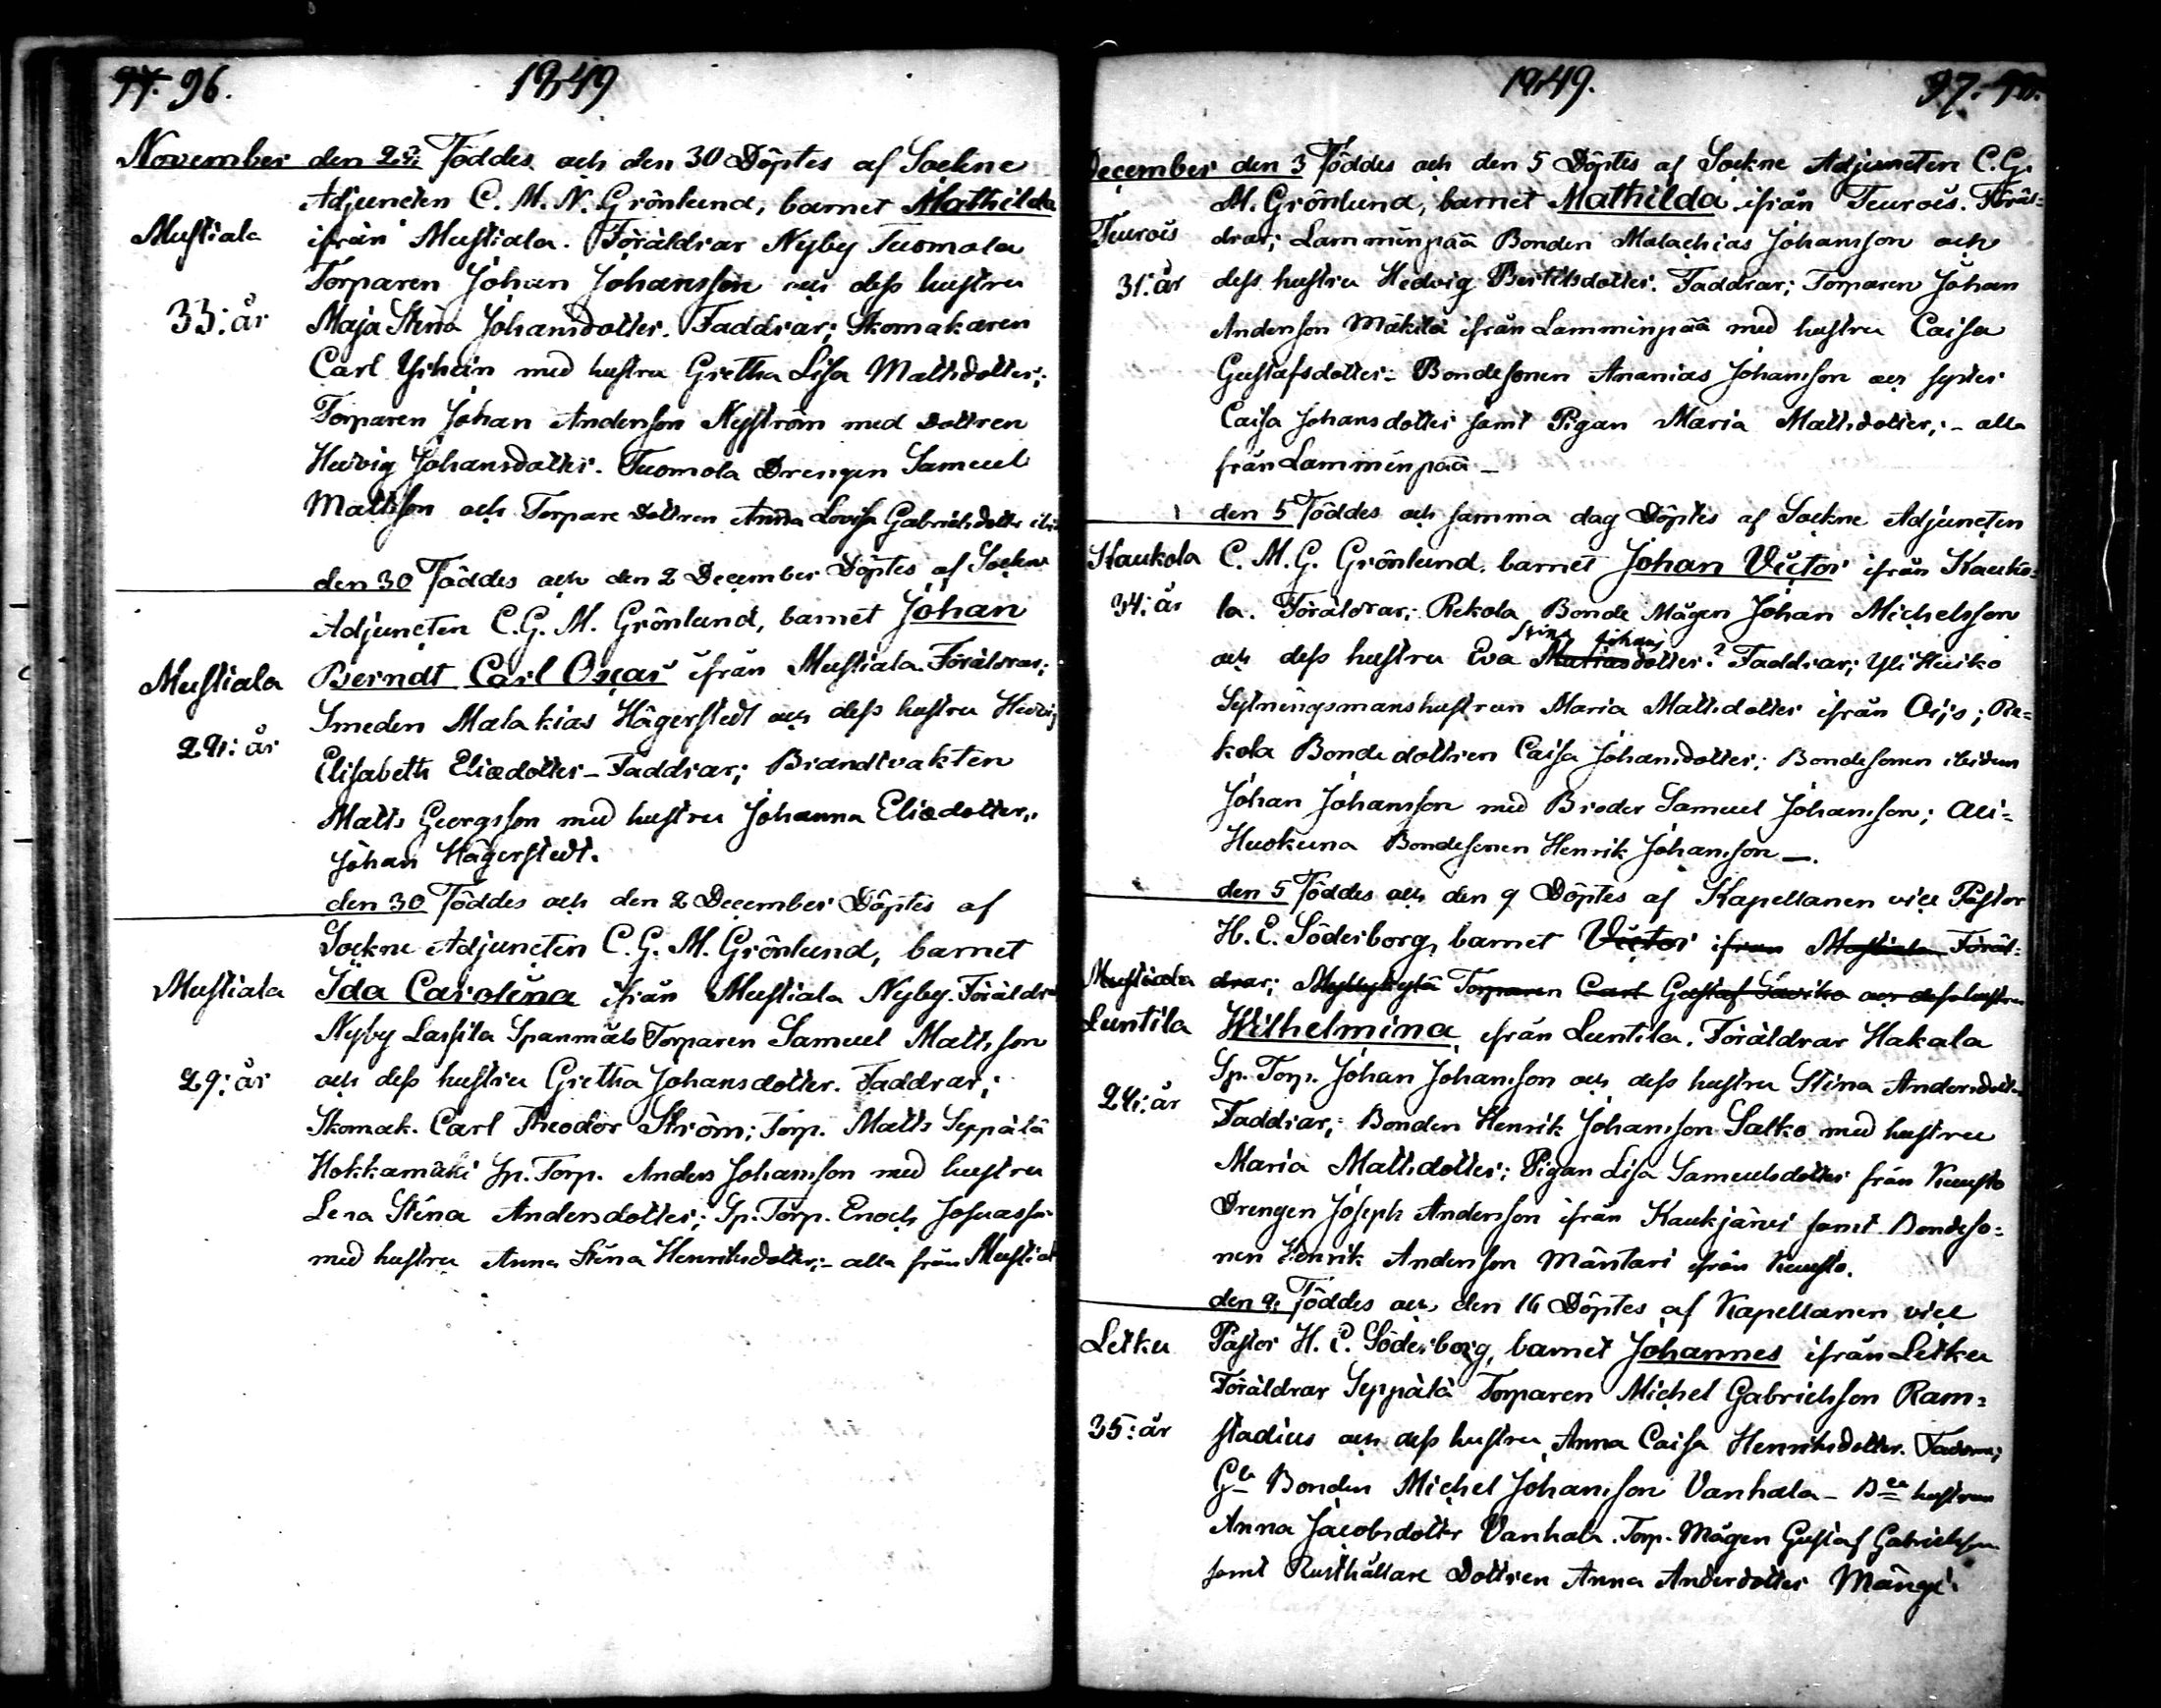 96.
1849
November den 29: Föddes och den 30 Döptes af Sockne
Adjuncten C. M. N. Grönlund, barnet Mathilda
Mustiala
ifrån Mustiala. Föräldrar Nyby Tuomola
Torparen Johan Johansson och dess hustru
33: år
Maja Stina Johansdotter. Faddrar; Skomakaren
Carl med hustru Gretha Lisa Mattsdotter;
Torparen Johan Andersson Nyström med Dottren
Hedvig Johansdotter. Tuomola Drengen Samuel
Mattsson och Torpare Dottren Anna Lovisa Gabrielsdotter
den 30 Föddes och den 2 December Döptes af Sockne
Adjuncten C. G. M. Grönlund, barnet Johan
Mustiala
Berndt Carl Oscar ifrån Mustiala. Föräldrar;
Smeden Malakias Hägerstedt och dess hustru Hedvig
29: år
Elisabeth Eliædotter – Faddrar; Brandtvakten
Matts Georgsson med hustru Johanna Eliædotter,
Johan Hägerstedt.
den 30 Föddes och den 2 December Döptes af
Sockne Adjuncten C. G. M. Grönlund, barnet
Mustiala
Ida Carolina ifrån Mustiala Nyby. Föräldr
Nyby Lassila Spanmåls Torparen Samuel Mattsson
29: år
och dess hustru Gretha Johansdotter. Faddrar;
Skomak. Carl Theodor Ström; Torp. Matts Seppälä
Hokkamäki Sp. Torp. Anders Johansson med hustru
Lena Stina Andersdotter; Sp. Torp. Enoch Josuasson
med hustru Anna Stina Henriksdotter; – alla från Mustial
1849.
97.
December den 3 Föddes och den 5 Döptes af Sockne Adjuncten C. G.
M. Grönlund, barnet Mathilda ifrån Teurois. Föräl=
Teurois
drar; Lamminpää Bonden Malachias Johansson och
31: år
dess hustru Hedvig Bertilsdotter. Faddrar; Torparen Johan
Andersson Mäkilä ifrån Lamminpää med hustru Caisa
Gustafsdotter: Bondesonen Ananias Johansson och syster
Caisa Johansdotter samt Pigan Maria Mattsdotter; – alla
från Lamminpää –
den 5 Föddes och samma dag Döptes af Sockne Adjuncten
Kaukola
C. M. G. Grönlund. barnet Johan Victor ifrån Kauko=
34: år
la. Föräldrar; Rekola Bonde Mågen Johan Michelsson
Stina Johans
och dess hustru Eva Matiasdotter? Faddrar; Yli Huiko
Sytningsmanshustrun Maria Mattsdotter ifrån Ojis; Re=
kola Bonde dottren Caisa Johansdotter; Bondesonen ibidem
Johan Johansson med Broder Samuel Johansson; Ali=
Huokuna Bondesonen Henrik Johansson –.
den 5 Föddes och den 9 Döptes af Kapellanen vice Pastor
H. E. Söderborg, barnet Victor ifrån Mustiala Föräl=
Mustiala
drar; Myllykylä Torparen Carl Gustaf och dess hustru
Luntila
Wilhelmina ifrån Luntila. Föräldrar Hakala
Sp. Torp. Johan Johansson och dess hustru Stina Andersdott.
24: år
Faddrar; Bonden Henrik Johansson Salko med hustru
Maria Mattsdotter; Pigan Lisa Samuelsdotter från Kuusto
Drengen Joseph Andersson ifrån Kaukjärvi samt Bondeso=
nen Henrik Andersson Mäntari ifrån Kuusto.
den 9: Föddes och den 16 Döptes af Kapellanen vice
Letku
Pastor H. E. Söderborg, barnet Johannes ifrån Letku
Föräldrar Seppälä Torparen Michel Gabrielsson Ram=
35: år
stadius och dess hustru Anna Caisa Henriksdotter. Faddrar;
Bonden Michel Johansson Vanhala – hustrun
Anna Jacobsdotter Vanhala. Torp. Mågen Gustaf Gabrielsson
samt Rusthållare Dottren Anna Andersdotter